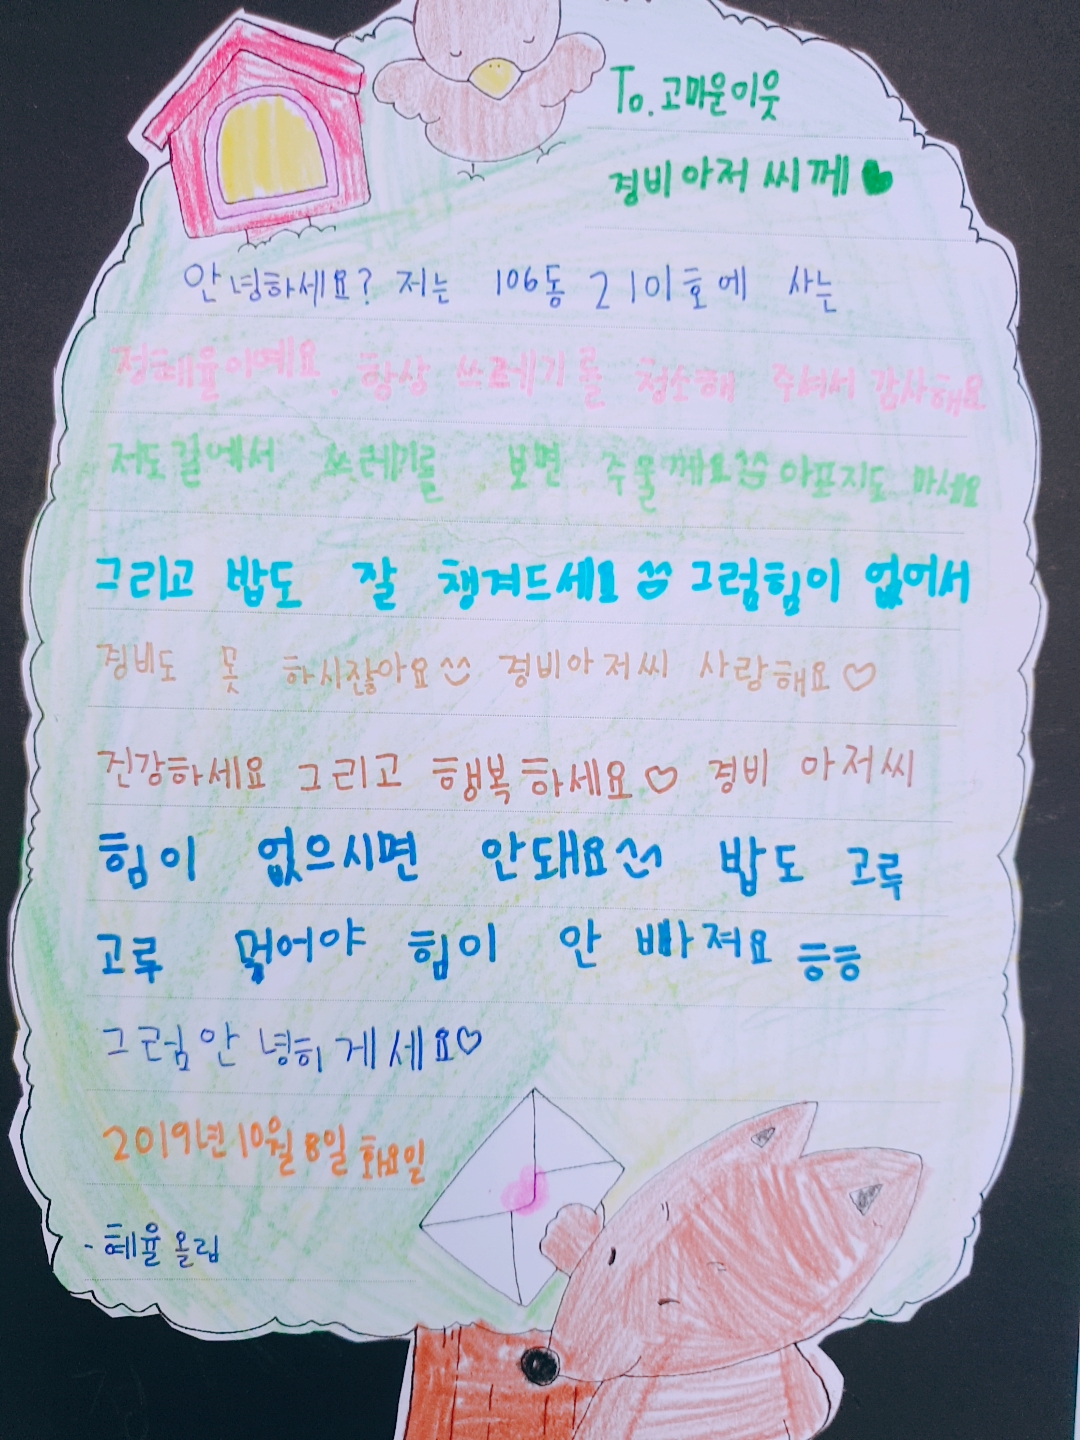 To.고마운이웃
경비아저씨께
안녕하세요? 저는 106동 2101호에 사는
정혜율이예요. 항상 쓰레기를 청소해 주셔서 감사해요
저도길에서 쓰레기를 보면 주울께요^^ 아프지도 마세요
그리고 밥도 잘 챙겨드세요^^ 그럼힘이 없어서
경비도 못 하시잖아요^^ 경비아저씨 사랑해요♡
건강하세요 그리고 행복하세요♡ 경비 아저씨
힘이 없으시면 안돼요^^ 밥도 고루
고루 먹어야 힘이 안 빠져요 ㅎㅎ
그럼안녕히 게세요♡
2019년10월8일 화요일
-혜율 올림